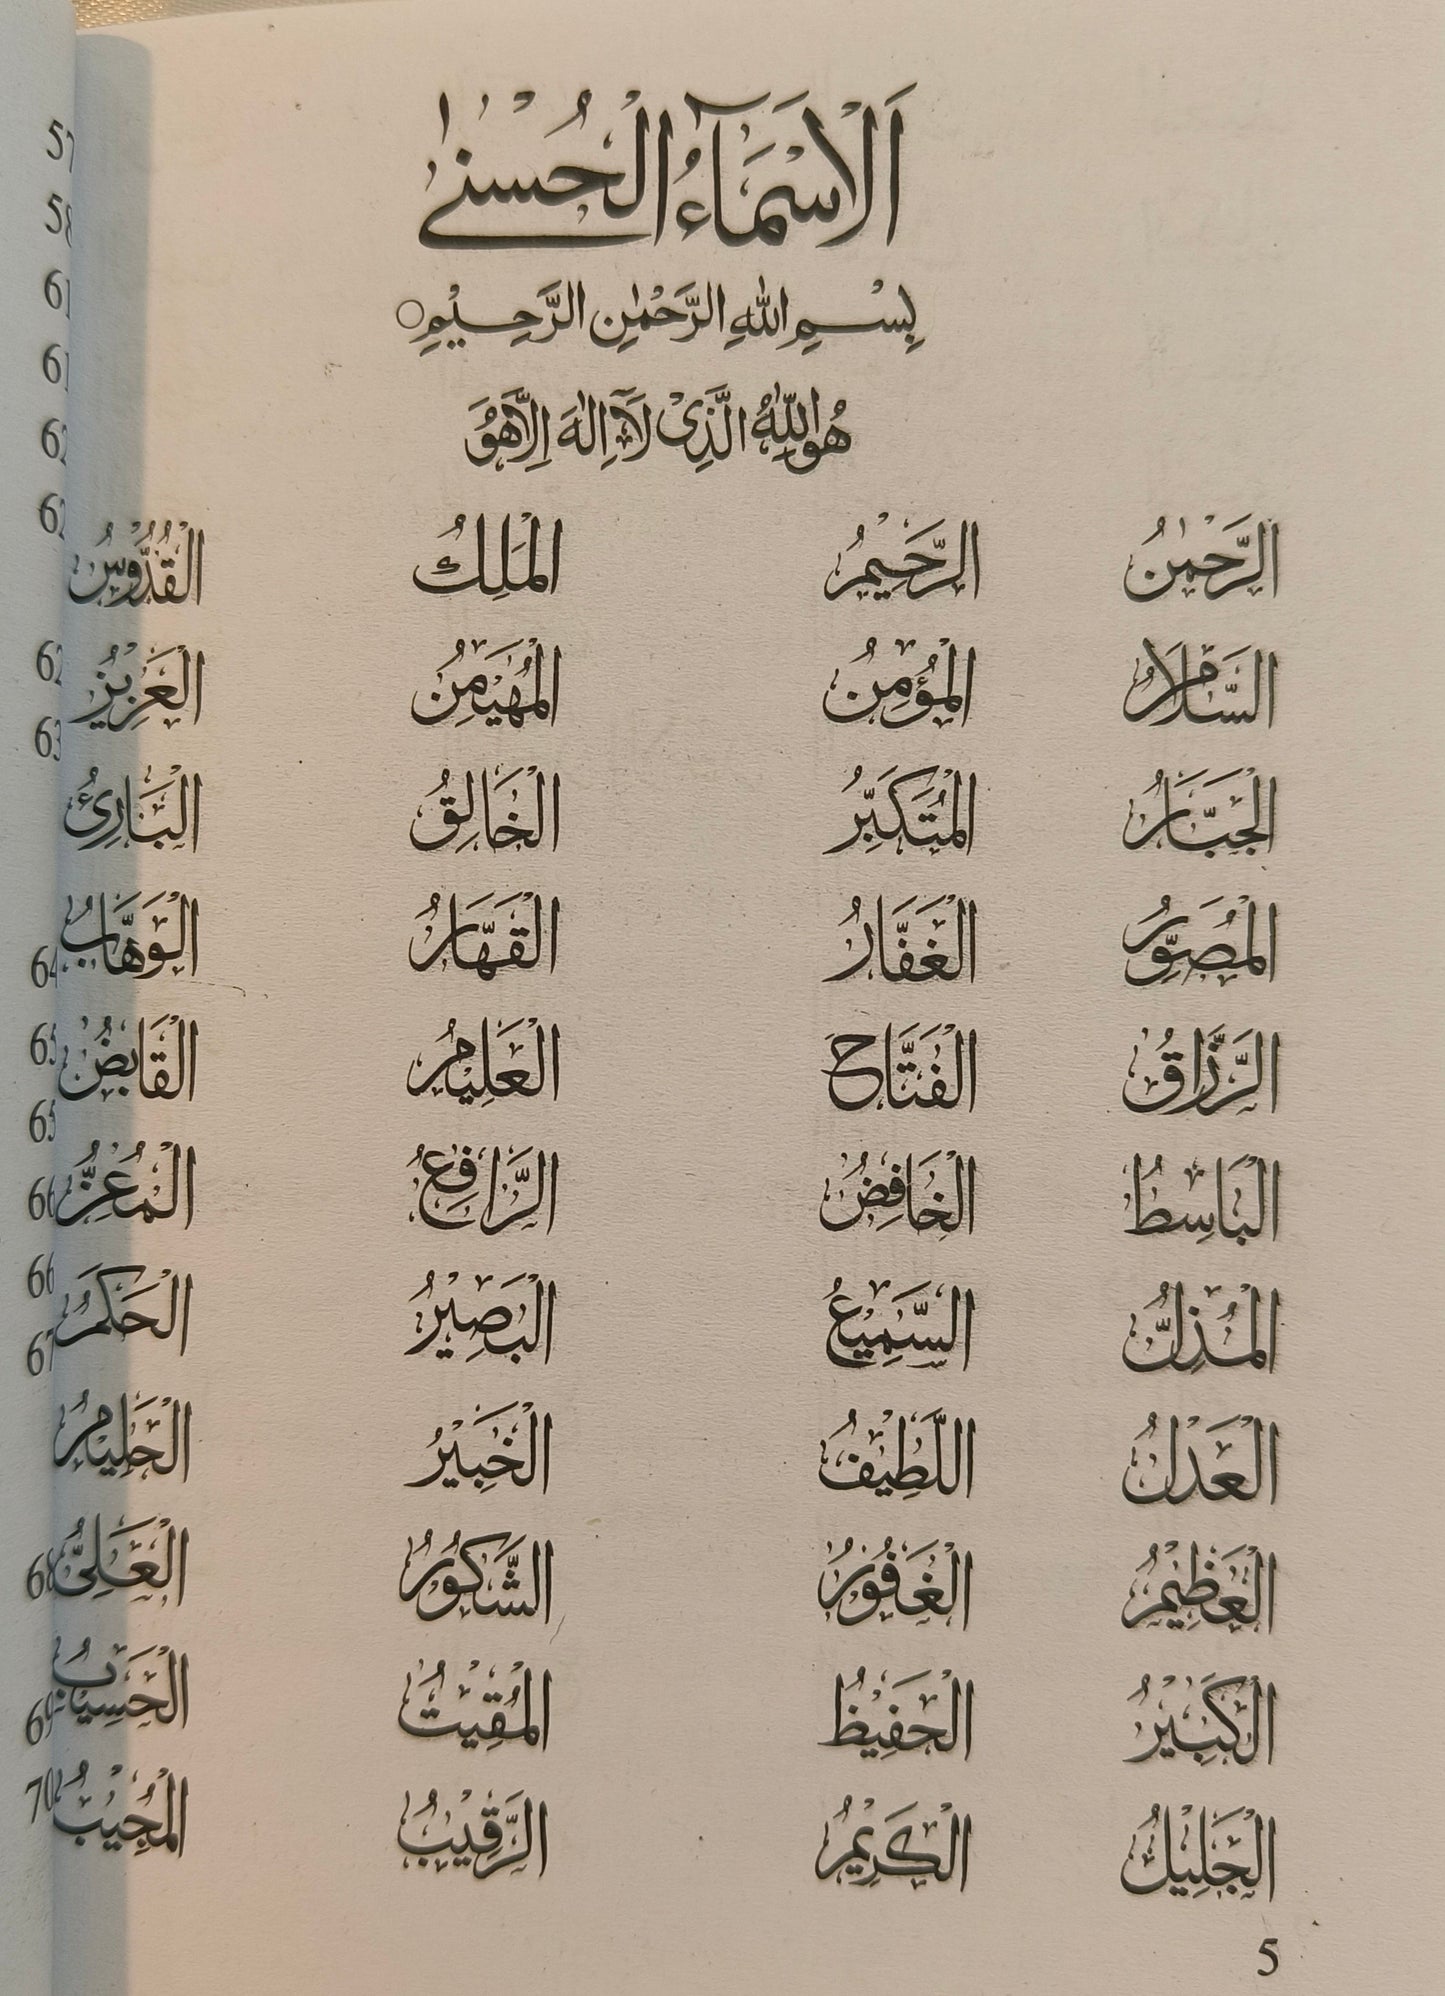 اَلْاَسْمَآءُ الْحُسْنٰى
بِسْمِ اللهِ الرَّحْمٰنِ الرَّحِيْمِ○
هُوَاللّٰهُ الَّذِىْ لَآ اِلٰهَ اِلَّاهُوَ
الرَّحْمٰنُ الرَّحِيْمُ الْمَلِكُ الْقُدُّوْسُ
السَّلَامُ الْمُؤْمِنُ الْمُهَيْمِنُ الْعَزِيْزُ
الْجَبَّارُ الْمُتَكَبِّرُ الْخَالِقُ الْبَارِئُ
الْمُصَوِّرُ الْغَفَّارُ الْقَهَّارُ الْوَهَّابُ
الرَّزَّاقُ الْفَتَّاحُ الْعَلِيْمُ الْقَابِضُ
الْبَاسِطُ الْخَافِضُ الرَّافِعُ الْمُعِزُّ
الْمُذِلُّ السَّمِيْعُ الْبَصِيْرُ الْحَكَمُ
الْعَدْلُ اللَّطِيْفُ الْخَبِيْرُ الْحَلِيْمُ
الْعَظِيْمُ الْغَفُوْرُ الشَّكُوْرُ الْعَلِىُّ
الْكَبِيْرُ الْحَفِيْظُ الْمُقِيْتُ الْحَسِيْبُ
الْجَلِيْلُ الْكَرِيْمُ الرَّقِيْبُ الْمُجِيْبُ
5
57
58
61
61
62
62
62
63
64
65
65
66
66
67
68
69
70